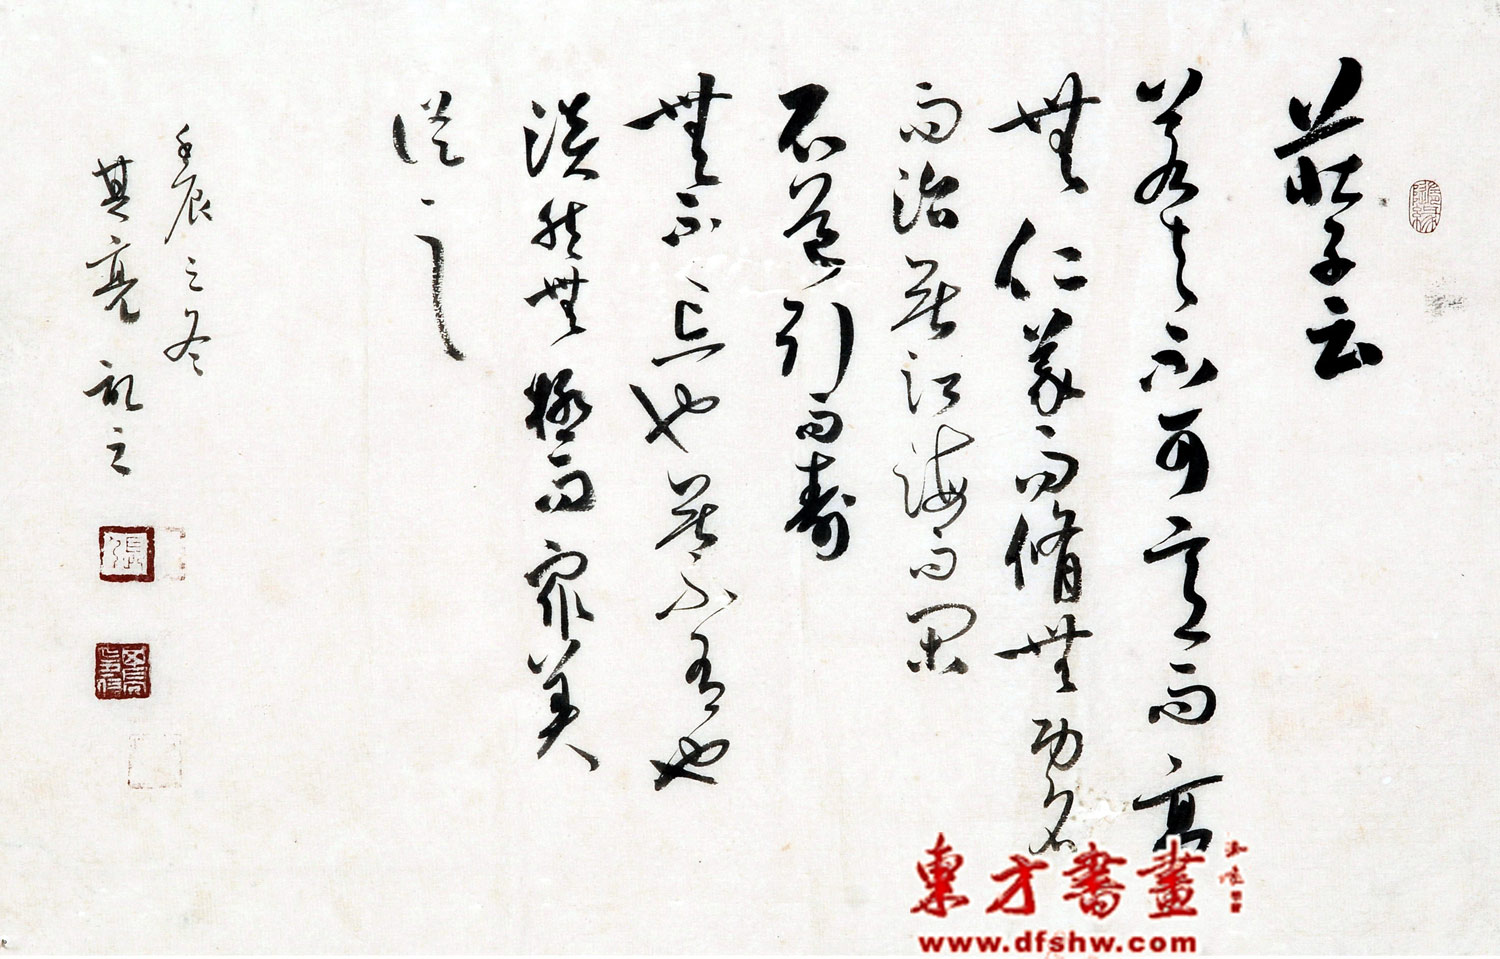 莊子云
若夫不可意而高
無仁義而脩無功名
而治無江海而閑
不道引而壽
無不忘也無不有也
淡然無極而眾美
從之
壬辰之冬
其亮記之
張
東方書畫
www.dfshw.com